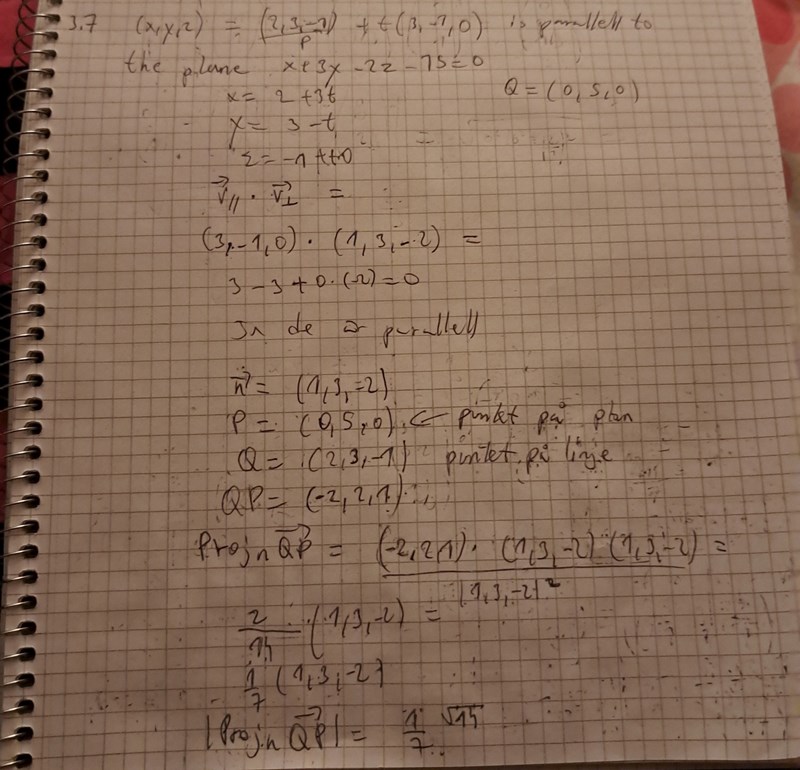 3.7 (x,y,z) = (2,3,-1) + t(3,-1,0) is parallell to
P
the plane x+3x-2z-15=0
x= 2+3t Q=(0,5,0)
y= 3-t
z=-1+t·0
V⃗// · V⃗⊥ =
(3,-1,0)·(1,3,-2) =
3-3+0·(-2)=0
Ja de är parallell
n⃗= (1,3,-2)
P= (0,5,0) ← punkt på plan
Q= (2,3,-1) punkt på linje
QP= (-2,2,1)
Projn QP⃗ = (-2,2,1)·(1,3,-2) (1,3,-2) =
|1,3,-2|²
2/14 (1,3,-2) =
1/7 (1,3,-2)
|Projn QP⃗| = 1/7 √14